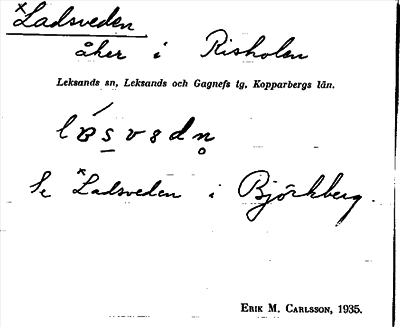 ×Ladsveden
åker i Risholen
Leksands sn, Leksands och Gagnefs tg, Kopparbergs län.
Se ×Ladsveden i Björkberg.
ERIK M. CARLSSON, 1935.